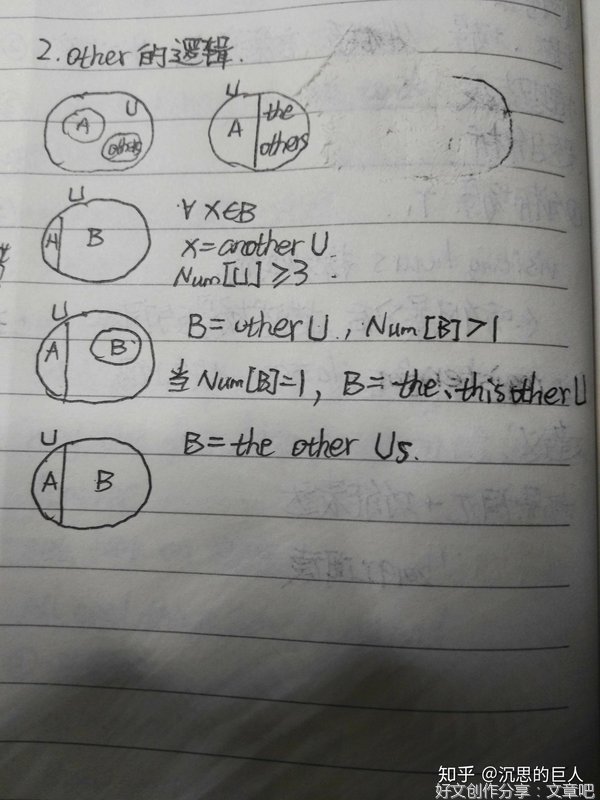 2. other 的逻辑.
A U others
U A the others
U A B
∀ x∈B
x=another U
Num[U]≥3
U A B
B=other U, Num[B]>1
当 Num[B]=1, B=the、this other U
U A B
B=the other Us.
知乎 @沉思的巨人
好文创作分享：文章吧